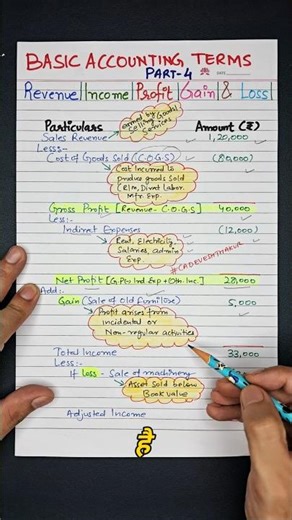 BASIC ACCOUNTING TERMS
PART-4
DATE
Revenue | Income | Profit | Gain & Loss
Particulars
Amount (₹)
earned by
Selling Goods/
Services
Sales Revenue
1,20,000
Less:-
Cost of Goods Sold (C.O.G.S)
(80,000)
Cost incurred to
produce goods sold
(R|m, Direct Labor
Mfr. Exp.
Gross Profit [Revenue - C.O.G.S]
40,000
Less:
Indirect Expenses
(12,000)
Rent, Electricity,
Salaries, admin
Exp.
#CADEVENTHAKUR
Net Profit [G.P
Ind. Exp + Oth. Inc.]
28,000
Add:-
Gain (Sale of Old furni
5,000
Profit arises from
incidental or
Non-regular activities
Total Income
33,000
Less:-
If Loss - Sale of machinery
Asset Sold below
Book value
Adjusted Income